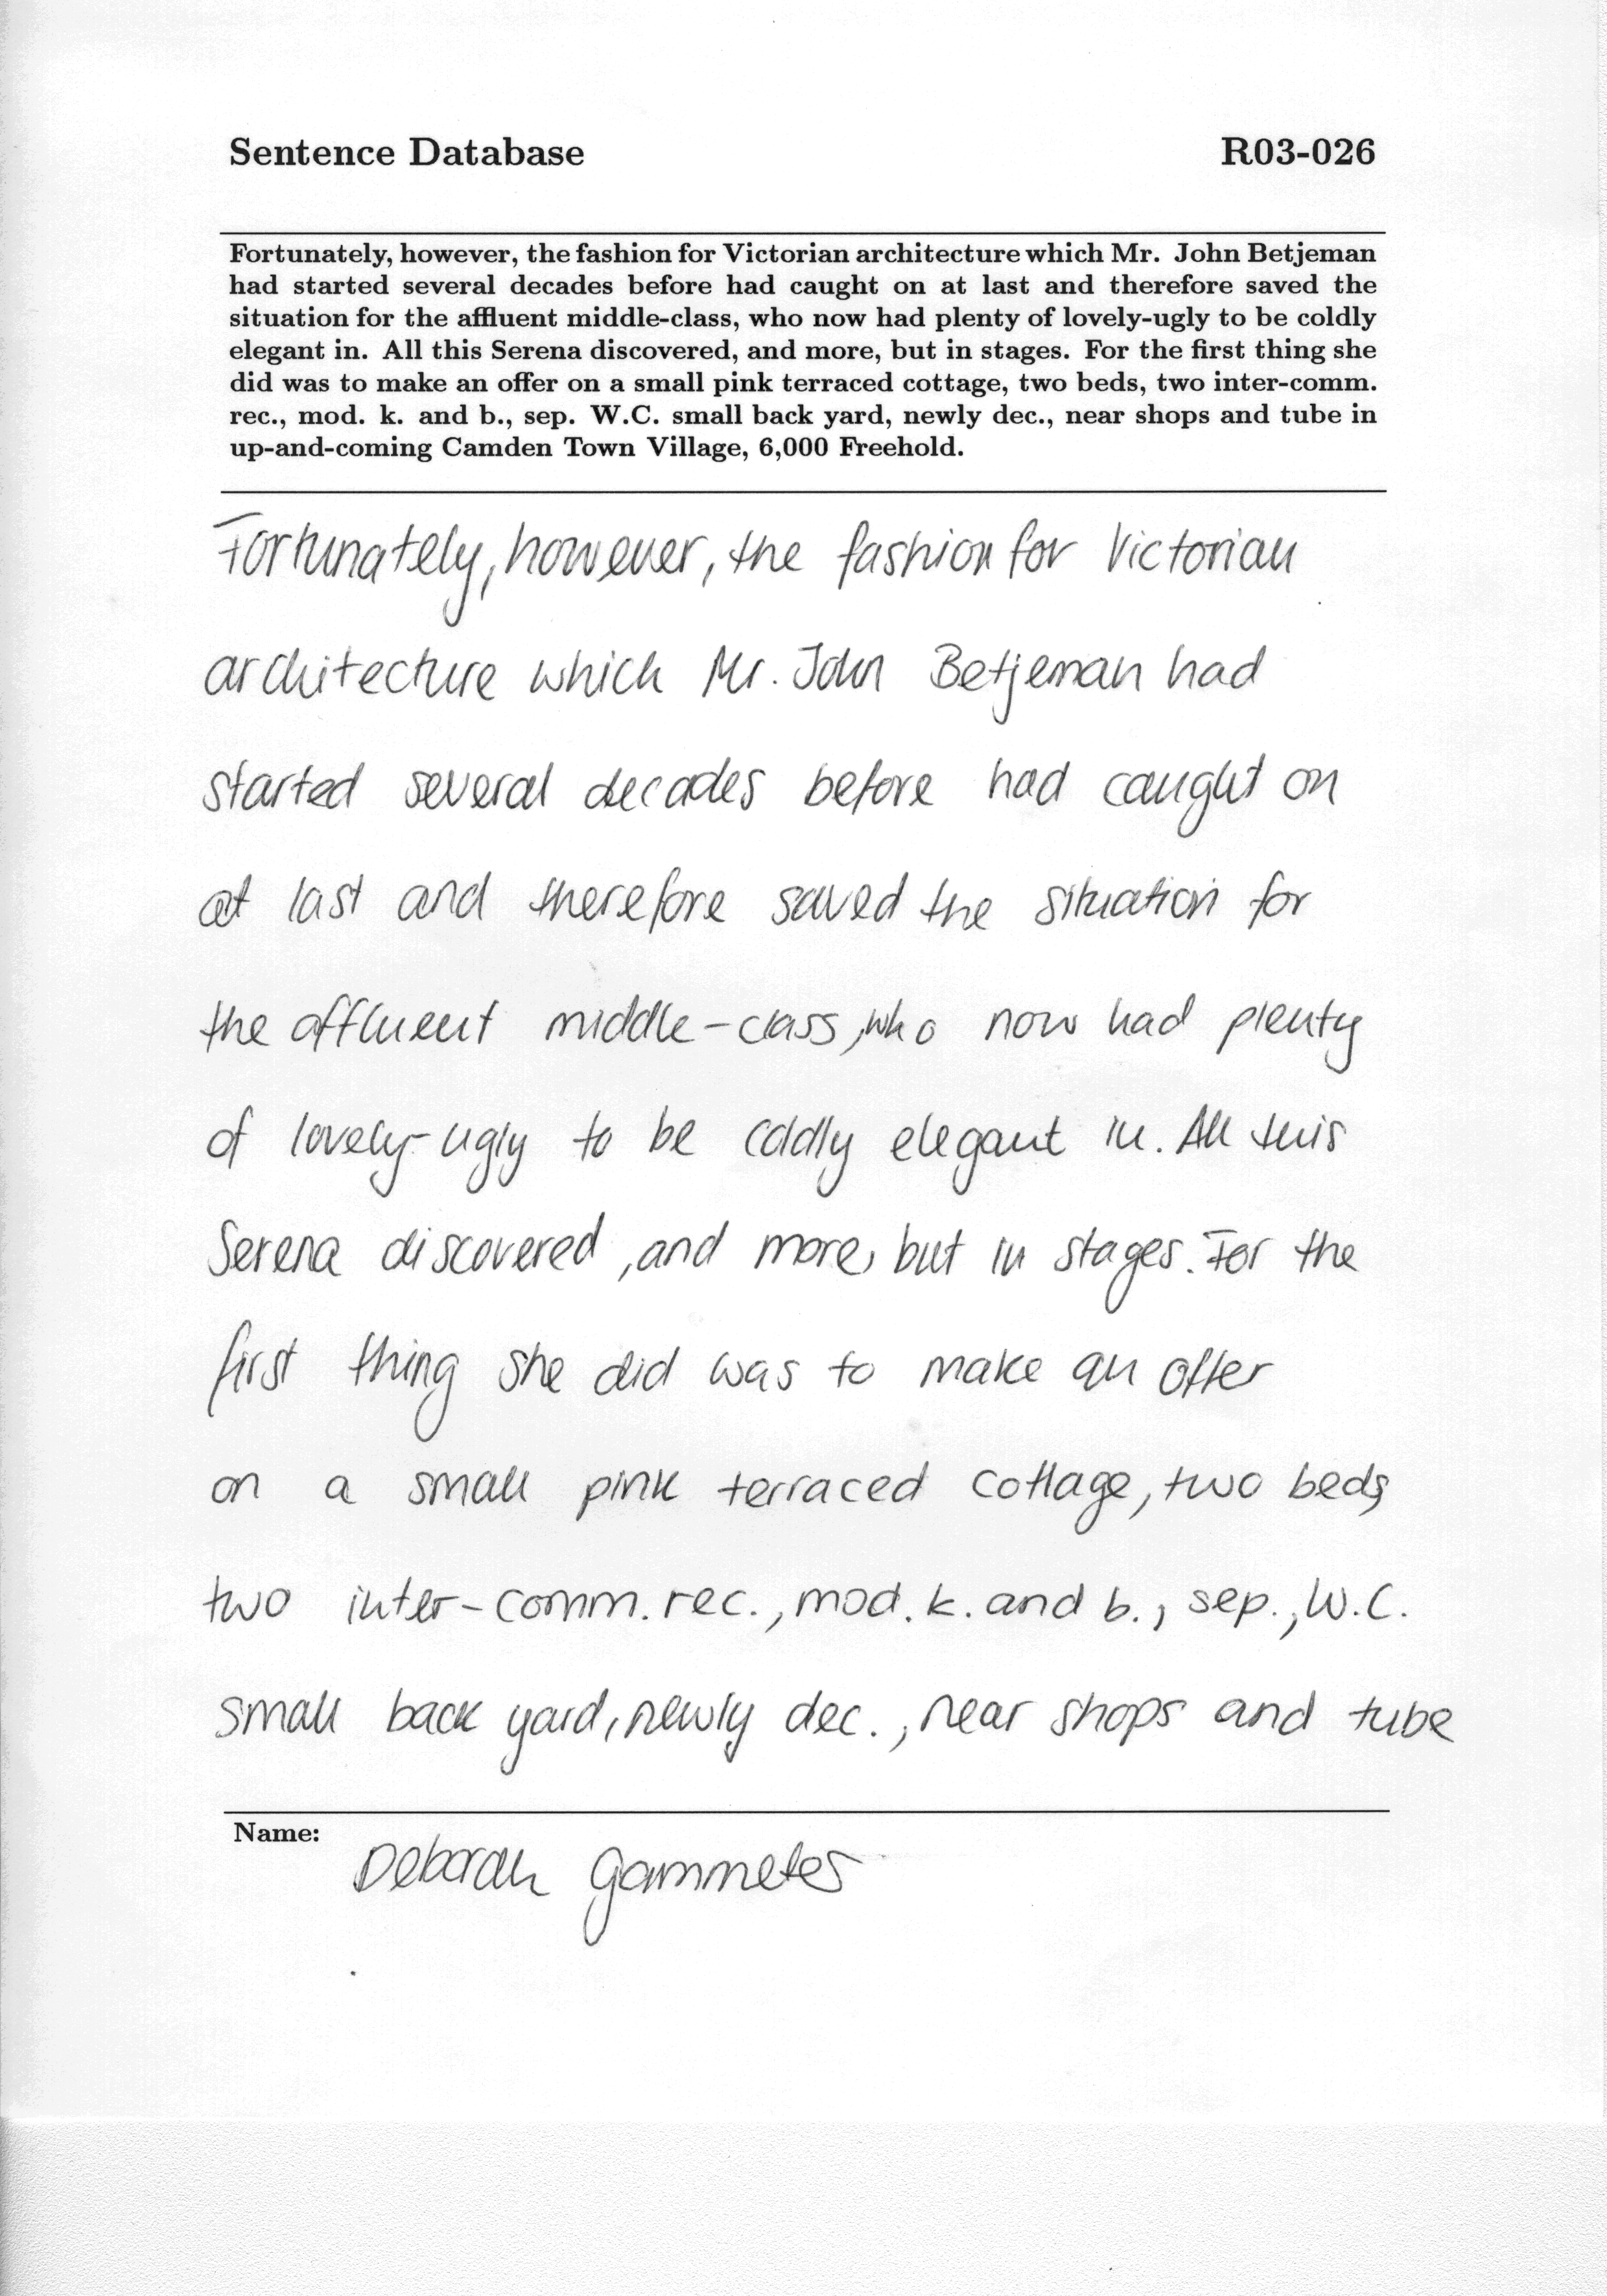 Sentence Database R03-026
Fortunately, however, the fashion for Victorian architecture which Mr. John Betjeman
had started several decades before had caught on at last and therefore saved the
situation for the affluent middle-class, who now had plenty of lovely-ugly to be coldly
elegant in. All this Serena discovered, and more, but in stages. For the first thing she
did was to make an offer on a small pink terraced cottage, two beds, two inter-comm.
rec., mod. k. and b., sep. W.C. small back yard, newly dec., near shops and tube in
up-and-coming Camden Town Village, 6,000 Freehold.
Fortunately, however, the fashion for Victorian
architecture which Mr. John Betjeman had
started several decades before had caught on
at last and therefore saved the situation for
the affluent middle-class, who now had plenty
of lovely-ugly to be coldly elegant in. All this
Serena discovered, and more, but in stages. For the
first thing she did was to make an offer
on a small pink terraced cottage, two beds,
two inter-comm. rec., mod. k. and b., sep., W.C.
small back yard, newly dec., near shops and tube
Name:
Deborah Gammeter